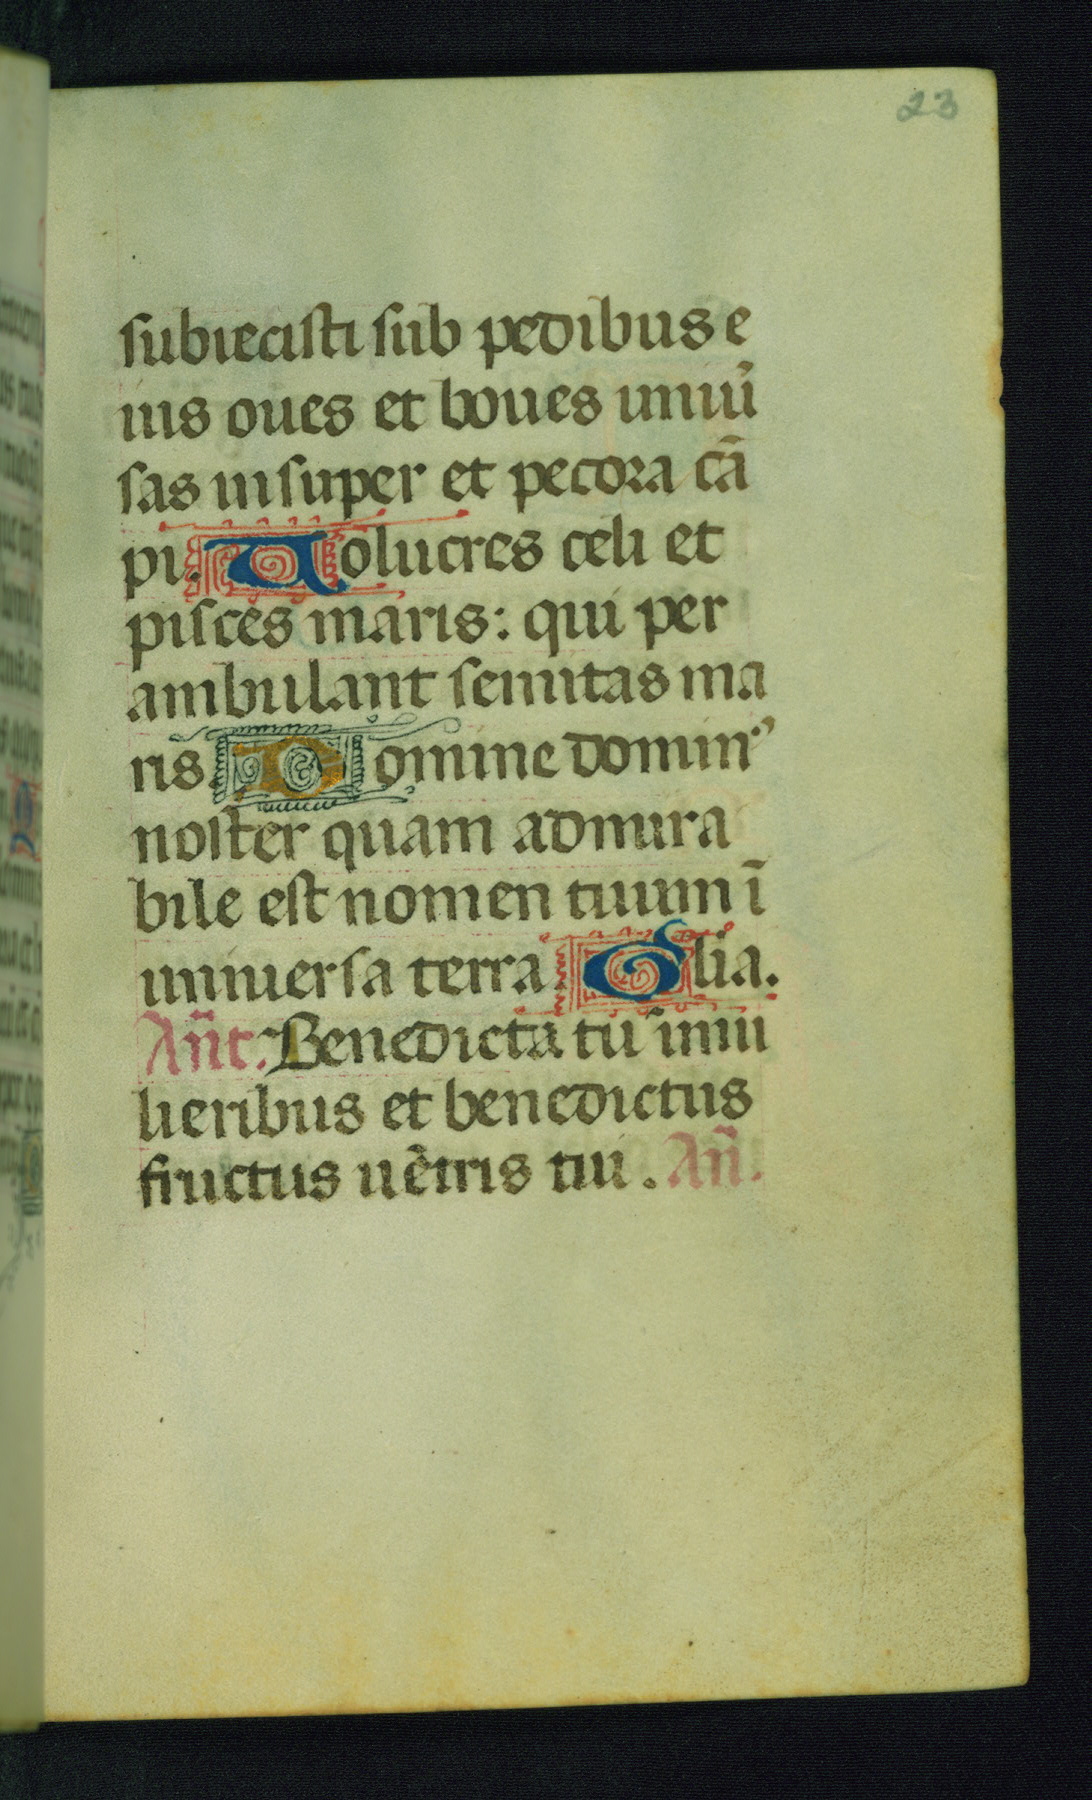 23
subiecisti sub pedibus e
ius oues et boues uniũ
sas insuper et pecora cã
pi. Uolucres celi et
pisces maris: qui per
ambulant semitas ma
ris. Domine domin⁹
noster quam admira
bile est nomen tuum ĩ
uniuersa terra. Glia.
Añt. Benedicta tu ĩ mu
lieribus et benedictus
fructus uẽtris tui. Añ.